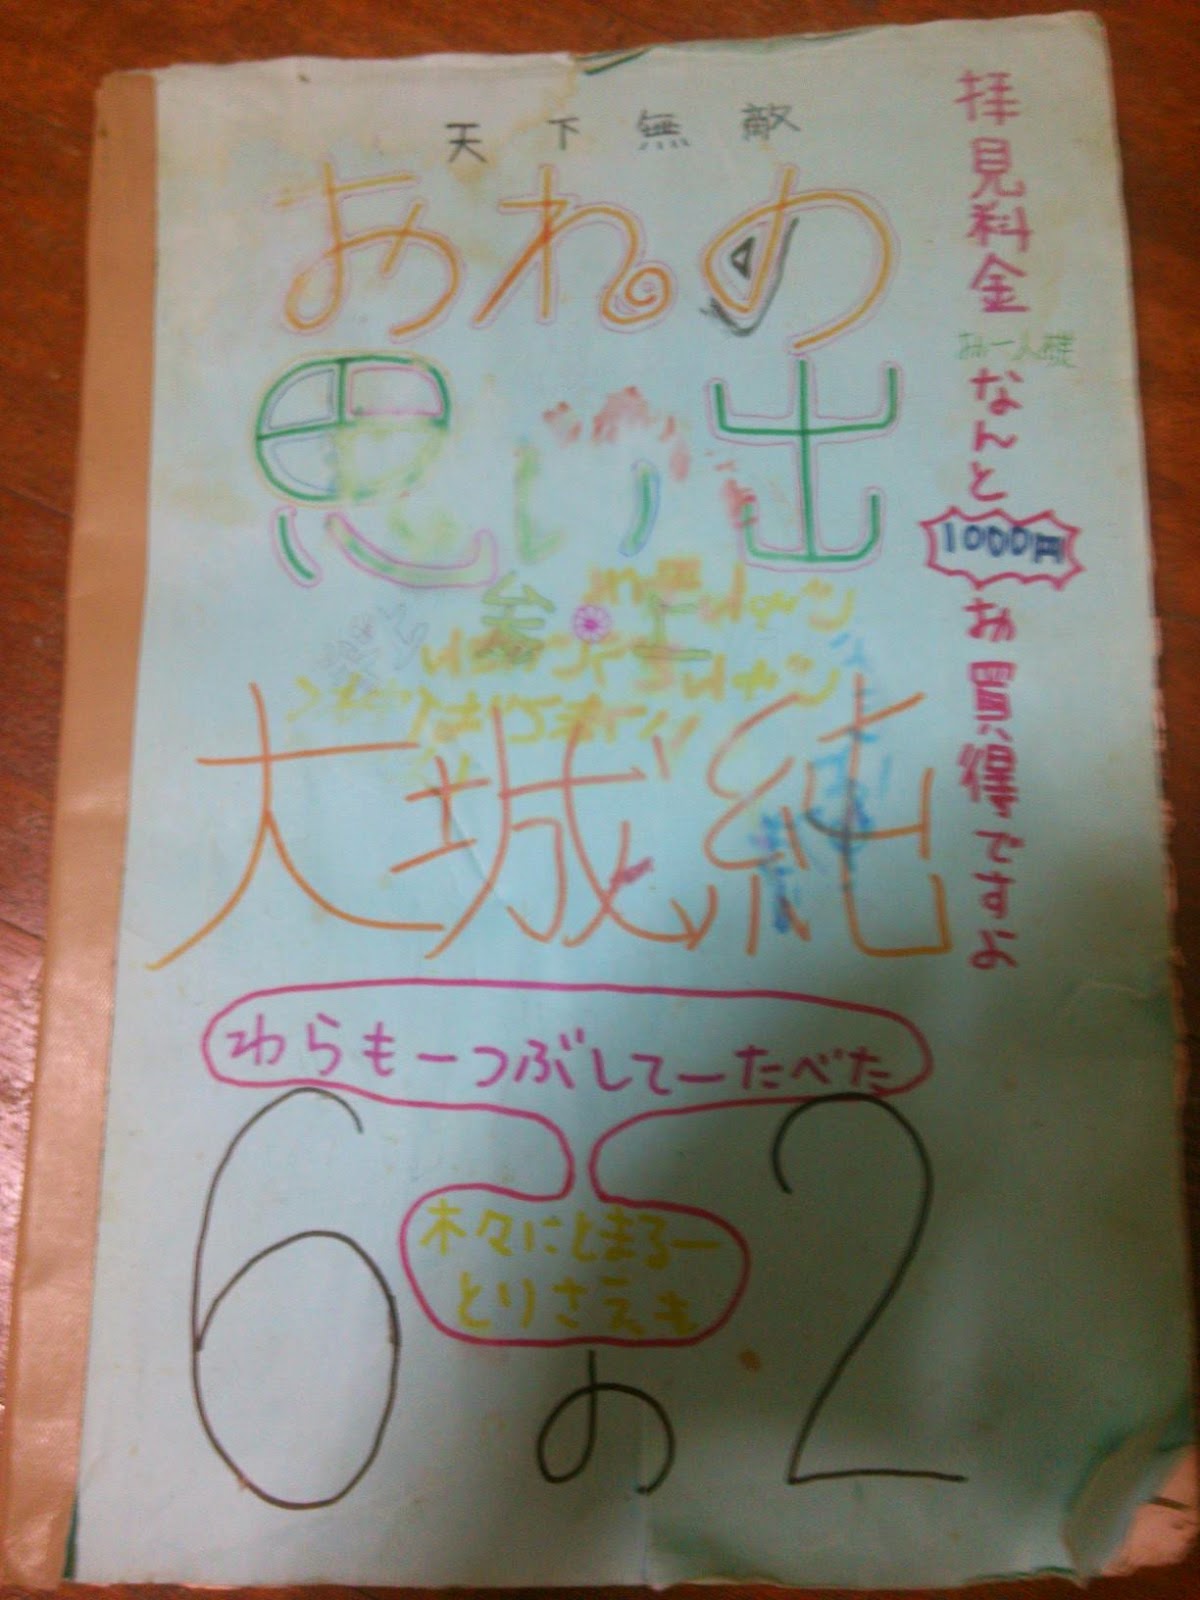 天下無敵
おれの
思い出
参上
大城純
拝見料金
お一人様
なんと
1000円
お買得ですよ
わらもーつぶしてーたべた
木々にとまるー
とりさえも
6の2